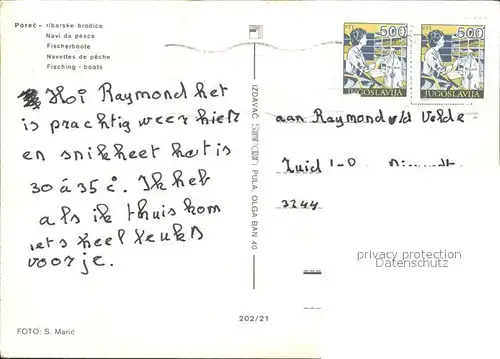 Poreč - ribarske brodice
Navi da pesca
Fischerboote
Navettes de pêche
Fisching - boats
Hoi Raymond het
is prachtig weer hier
en snikheet het is
30 á 35 c. Ik heb
als ik thuis kom
iets heel leuks
voor je.
FOTO: S. Marić
202/21
IZDAVAČ PULA, OLGA BAN 40
PTT 500
JUGOSLAVIJA
PTT 500
JUGOSLAVIJA
aan Raymond v/d Velde
Zuid
3244
privacy protection
Datenschutz